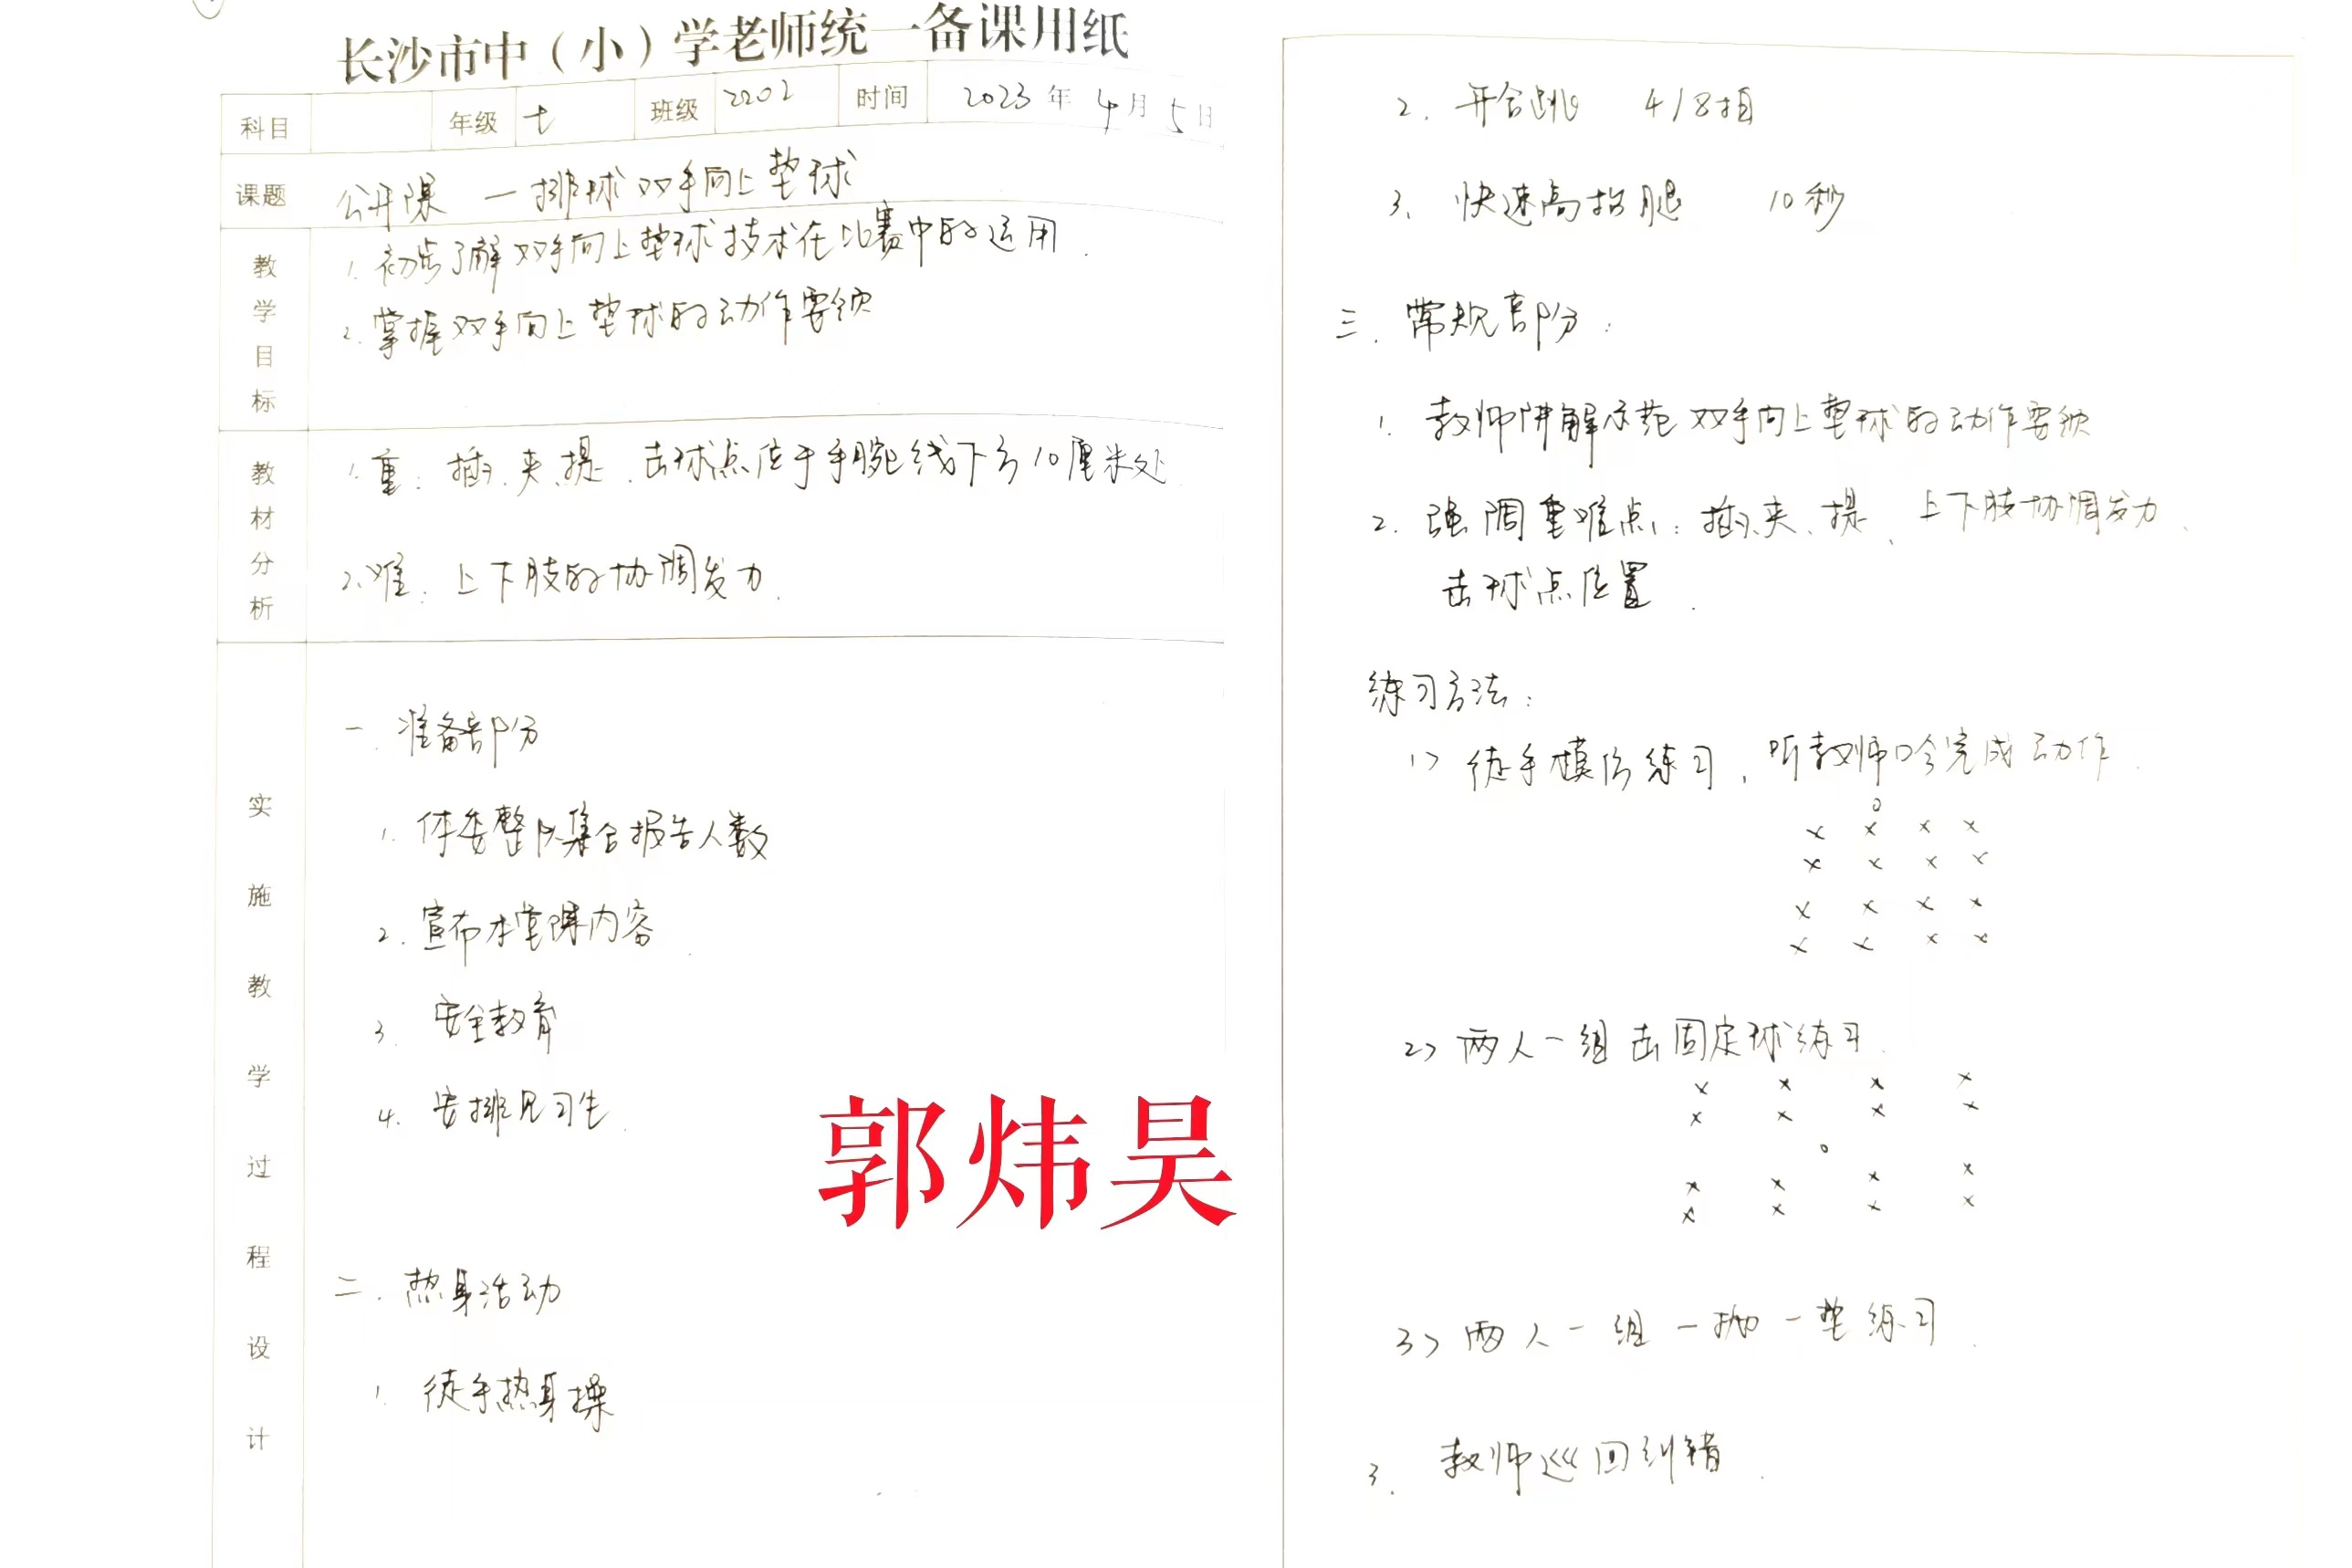 长沙市中（小）学老师统一备课用纸
科目 年级 七 班级 2202 时间 2023年4月5日
课题 公开课 一排球双手向上垫球
教学目标
1. 初步了解双手向上垫球技术在比赛中的运用.
2. 掌握双手向上垫球的动作要领
教材分析
1. 重: 插、夹、提、击球点位于手腕线下方10厘米处
2. 难: 上下肢的协调发力.
实施教学过程设计
一. 准备部分
1. 体委整队集合报告人数
2. 宣布本堂课内容.
3. 安全教育
4. 安排见习生.
郭炜昊
二. 热身活动
1. 徒手热身操
2. 开合跳 4/8拍
3. 快速高抬腿 10秒
三. 常规部分:
1. 教师讲解示范双手向上垫球的动作要领
2. 强调重难点: 插、夹、提、上下肢协调发力、
击球点位置.
练习方法:
1> 徒手模仿练习, 听教师口令完成动作.
2> 两人一组击固定球练习.
3> 两人一组一抛一垫练习.
3. 教师巡回纠错.